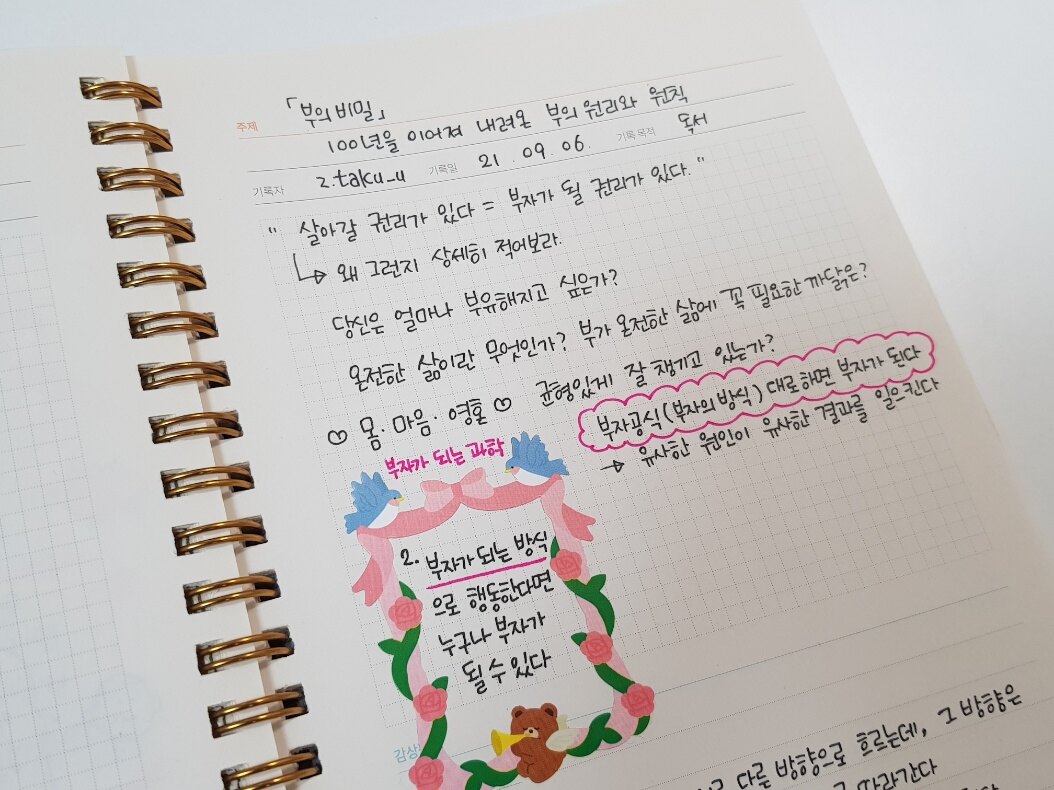 「부의 비밀」
주제
100년을 이어져 내려온 부의 원리와 원칙
기록자 z.taku_u 기록일 21.09.06. 기록 목적 독서
" 살아갈 권리가 있다 = 부자가 될 권리가 있다. "
↳ 왜 그런지 상세히 적어보라.
당신은 얼마나 부유해지고 싶은가?
온전한 삶이란 무엇인가? 부가 온전한 삶에 꼭 필요한 까닭은?
♡ 몸·마음·영혼 ♡ 균형있게 잘 챙기고 있는가?
부자공식(부자의 방식) 대로하면 부자가 된다
→ 유사한 원인이 유사한 결과를 일으킨다
부자가 되는 과학
2. 부자가 되는 방식
으로 행동한다면
누구나 부자가
될 수 있다
감상
다른 방향으로 흐르는데, 그 방향은
따라간다